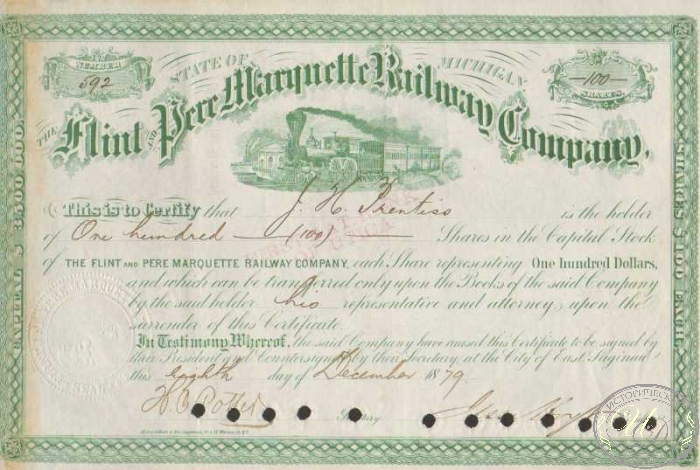 NUMBER
592
STATE OF MICHIGAN
100
SHARES
THE Flint AND Pere Marquette Railway Company.
CAPITAL $
SHARES $100 EACH.
This is to Certify that J. H. Prentiss is the holder
of One hundred (100) Shares in the Capital Stock
of THE FLINT AND PERE MARQUETTE RAILWAY COMPANY, each Share representing One hundred Dollars,
and which can be transferred only upon the Books of the said Company
by the said holder his representative and attorney upon the
surrender of this Certificate.
In Testimony Whereof, the said Company have caused this Certificate to be signed by
their President and Countersigned by their Secretary at the City of East Saginaw
this eighth day of December 1879
H. C. Potter